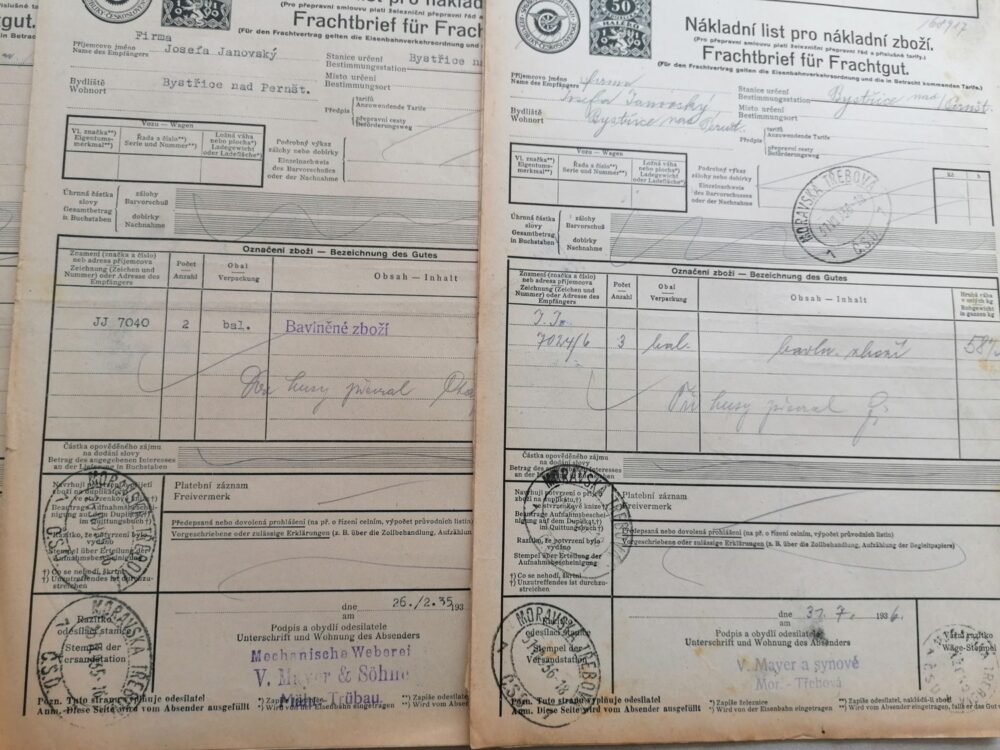 Frachtbrief für Frach
(Pro přepravní smlouvu platí železniční přepravní řád a
(Für den Frachtvertrag gelten die Eisenbahnverkehrsordnung und
Příjemcovo jméno
Name des Empfängers
Firma
Josefa Janovský
Stanice určení
Bestimmungsstation
Bystřice n
Bydliště
Wohnort
Bystřice nad Pernšt.
Místo určení
Bestimmungsort
Předpis
tarifů
Anzuwendende Tarife
přepravní cesty
Beförderungsweg
Vozu — Wagen
Vl. značka**)
Eigentums-
merkmal**)
Řada a číslo**)
Serie und Nummer**)
Ložná váha
nebo plocha*)
Ladegewicht
oder Ladefläche*)
Podrobný výkaz
zálohy nebo dobírky
Einzelnachweis
des Barvorschusses
oder der Nachnahme
Úhrnná částka
slovy
Gesamtbetrag
in Buchstaben
zálohy
Barvorschuß
dobírky
Nachnahme
Označení zboží — Bezeichnung des Gutes
Znamení (značka a číslo)
neb adresa příjemcova
Zeichnung (Zeichen und
Nummer) oder Adresse des
Empfängers
Počet
Anzahl
Obal
Verpackung
Obsah — Inhalt
JJ 7040 2 bal. Bavlněné zboží
Částka opověděného zájmu
na dodání slovy
Betrag des angegebenen Interesses
an der Lieferung in Buchstaben
Platební záznam
Freivermerk
Předepsaná nebo dovolená prohlášení (na př. o řízení celním, výpočet průvodních listin)
Vorgeschriebene oder zulässige Erklärungen (z. B. über die Zollbehandlung, Aufzählun
†) Co se nehodí, škrtni
†) Unzutreffendes ist durchzu-
streichen
MORAVSKÁ TŘEBOVÁ
ČSD
Razítko
odesílací stanice
Stempel der
Versandstation
dne
am
26./2.35 193
Podpis a obydlí odesilatele
Unterschrift und Wohnung des Absenders
Mechanische Weberei
V. Mayer & Söhne
Mähr.-Trübau.
Pozn. Tuto stranu vyplňuje odesilatel
Anm. Diese Seite wird vom Absender ausgefüllt
50
HALÉŘŮ
Nákladní list pro nákladní zboží.
(Pro přepravní smlouvu platí železniční přepravní řád a příslušné tarify.)
Frachtbrief für Frachtgut.
(Für den Frachtvertrag gelten die Eisenbahnverkehrsordnung und die in Betracht kommenden Tarife.)
Příjemcovo jméno
Name des Empfängers
firma
Josefa Janovský
Stanice určení
Bestimmungsstation
Bystřice nad Pernšt.
Bydliště
Wohnort
Bystřice nad Pernšt.
Místo určení
Bestimmungsort
Předpis
tarifů
Anzuwendende Tarife
přepravní cesty
Beförderungsweg
Vozu — Wagen
Vl. značka**)
Eigentums-
merkmal**)
Řada a číslo**)
Serie und Nummer**)
Ložná váha
nebo plocha*)
Ladegewicht
oder Ladefläche*)
Podrobný výkaz
zálohy nebo dobírky
Einzelnachweis
des Barvorschusses
oder der Nachnahme
Kč h
MORAVSKÁ TŘEBOVÁ
ČSD
Úhrnná částka
slovy
Gesamtbetrag
in Buchstaben
zálohy
Barvorschuß
dobírky
Nachnahme
Označení zboží — Bezeichnung des Gutes
Znamení (značka a číslo)
neb adresa příjemcova
Zeichnung (Zeichen und
Nummer) oder Adresse des
Empfängers
Počet
Anzahl
Obal
Verpackung
Obsah — Inhalt
Hrubá váha
v celých kg
Rohgewicht
in ganzen kg
7024/6 3 bal. bavln. zboží
Částka opověděného zájmu
na dodání slovy
Betrag des angegebenen Interesses
an der Lieferung in Buchstaben
Platební záznam
Freivermerk
Předepsaná nebo dovolená prohlášení (na př. o řízení celním, výpočet průvodních listin)
Vorgeschriebene oder zulässige Erklärungen (z. B. über die Zollbehandlung, Aufzählung der Begleitpapiere)
Razítko, že potvrzení bylo
vydáno
Stempel über Erteilung der
Aufnahmsbescheinigung
†) Co se nehodí, škrtni
†) Unzutreffendes ist durchzu-
streichen
MORAVSKÁ TŘEBOVÁ
ČSD
odesílací stanice
Stempel der
Versandstation
dne
am
31. 7. 1936.
Podpis a obydlí odesilatele
Unterschrift und Wohnung des Absenders
V. Mayer a synové
Mor.-Třebová
Vážní razítko
Wäge-Stempel
Pozn. Tuto stranu vyplňuje odesilatel
Anm. Diese Seite wird vom Absender ausgefüllt
*) Zapíše železnice
*) Wird von der Eisenbahn eingetragen